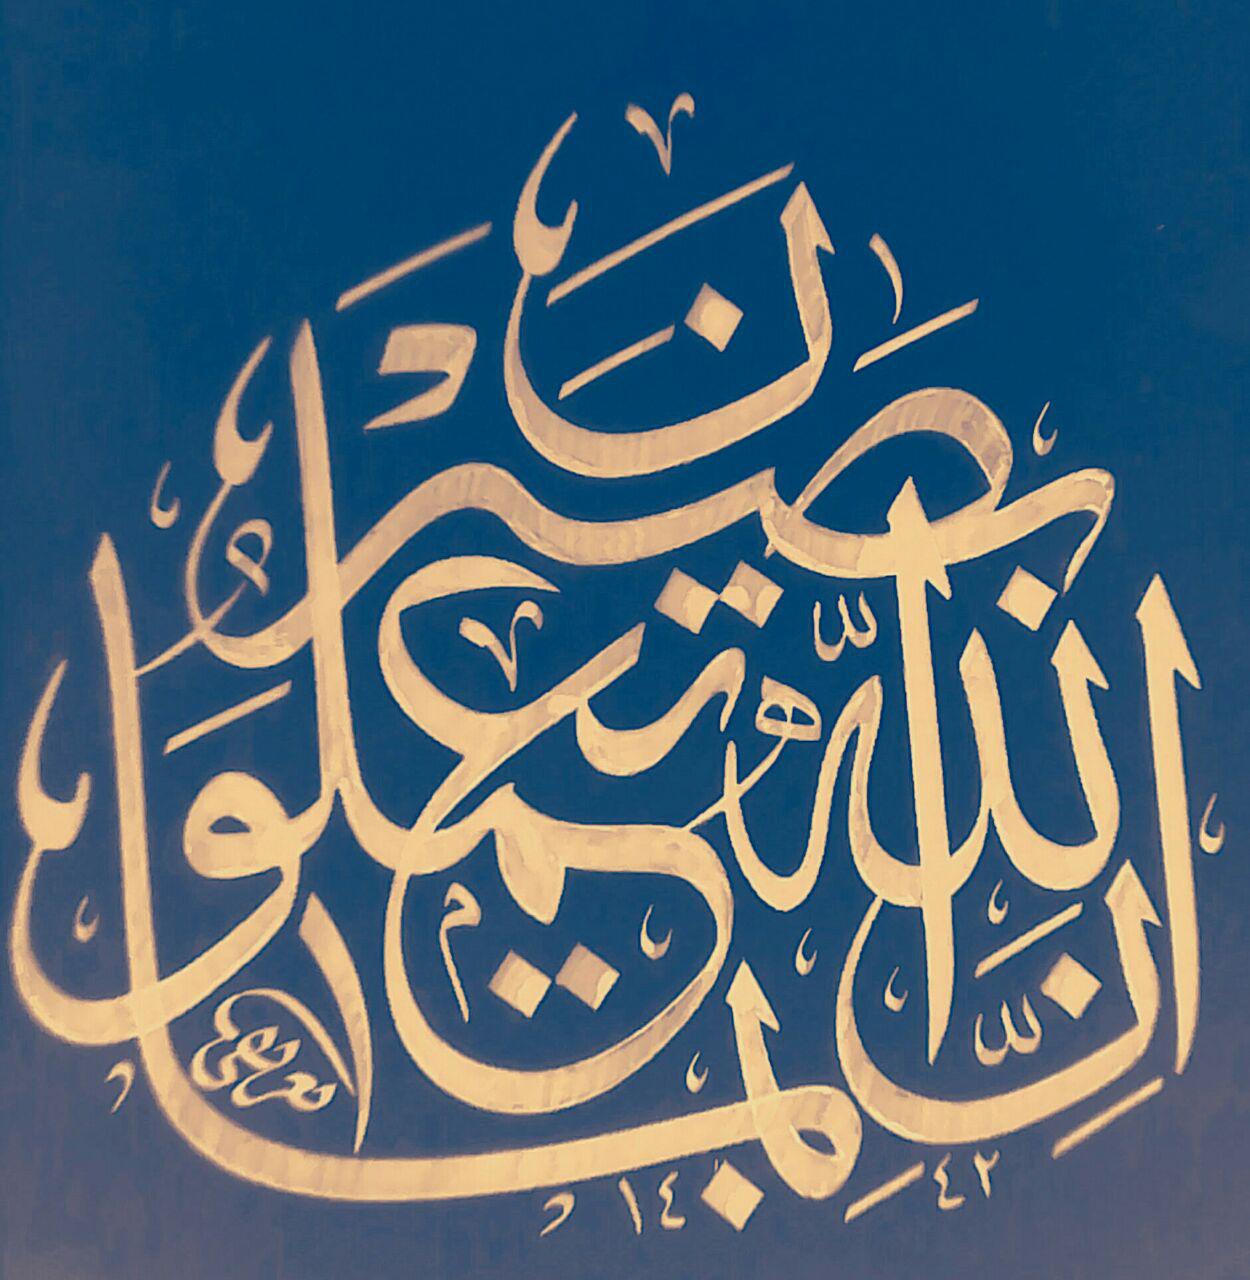 ان الله بما يعملون بصير
١٤٤٢